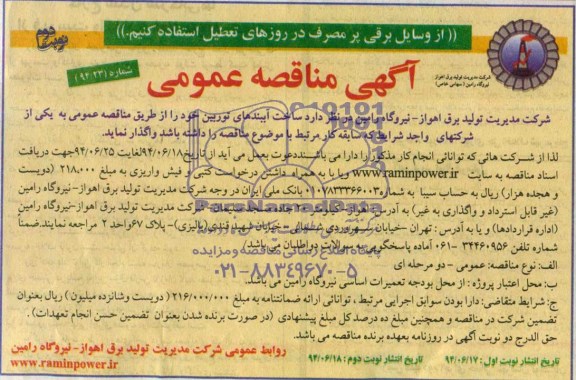 نوبت دوم
(( از وسایل برقی پر مصرف در روزهای تعطیل استفاده کنیم.))
شرکت مدیریت تولید برق اهواز
نیروگاه رامین (سهامی خاص)
آگهی مناقصه عمومی
شماره (۹۴-۲۳)
شرکت مدیریت تولید برق اهواز- نیروگاه رامین در نظر دارد ساخت آببندهای توربین خود را از طریق مناقصه عمومی به یکی از
شرکتهای واجد شرایط که سابقه کار مرتبط با موضوع مناقصه را داشته باشد واگذار نماید.
لذا از شرکت هائی که توانائی انجام کار مذکور را دارا می باشند دعوت بعمل می آید از تاریخ ۹۴/۰۶/۱۸ لغایت ۹۴/۰۶/۲۵ جهت دریافت
اسناد مناقصه به سایت www.raminpower.ir و یا با به همراه داشتن درخواست کتبی و فیش واریزی به مبلغ ۲۱۸.۰۰۰
و هجده هزار) ریال به حساب سیبا به شماره ۰۱۰۷۸۳۳۳۶۶۰۰۳ بانک ملی ایران در وجه شرکت مدیریت تولید برق اهواز- نیروگاه رامین
(غیر قابل استرداد و واگذاری به غیر) به آدرس: اهواز- کیلومتر ۲۰ جاده مسجدسلیمان- شرکت مدیریت تولید برق اهواز-نیروگاه رامین
(اداره قراردادها) و یا به آدرس : تهران -خیابان سهروردی شمالی- خیابان شهید قندی (پالیزی)- پلاک ۶۷ واحد ۲ مراجعه نمایند.ضمناً
شماره تلفن ۳۴۴۶۰۹۵۶ -۰۶۱ آماده پاسخگویی به سوالات داوطلبان می باشد/
الف: نوع مناقصه: عمومی - دو مرحله ای
ب: محل اعتبار پروژه : از محل بودجه تعمیرات اساسی نیروگاه رامین می باشد.
ج: شرایط متقاضی: دارا بودن سوابق اجرایی مرتبط ، توانائی ارائه ضمانتنامه به مبلغ ۲۱۶/۰۰۰/۰۰۰ ( دویست وشانزده میلیون ) ریال بعنوان
تضمین شرکت در مناقصه و همچنین مبلغ ده درصد کل مبلغ پیشنهادی (در صورت برنده شدن بعنوان تضمین حسن انجام تعهدات) .
حق الدرج دو نوبت آگهی در روزنامه بعهده برنده مناقصه می باشد.
پایگاه اطلاع رسانی مناقصه و مزایده
۰۲۱-۸۸۳۴۹۶۷۰-۵
تاریخ انتشار نوبت اول : ۹۴/۰۶/۱۷ تاریخ انتشار نوبت دوم : ۹۴/۰۶/۱۸
روابط عمومی شرکت مدیریت تولید برق اهواز- نیروگاه رامین
www.raminpower.ir